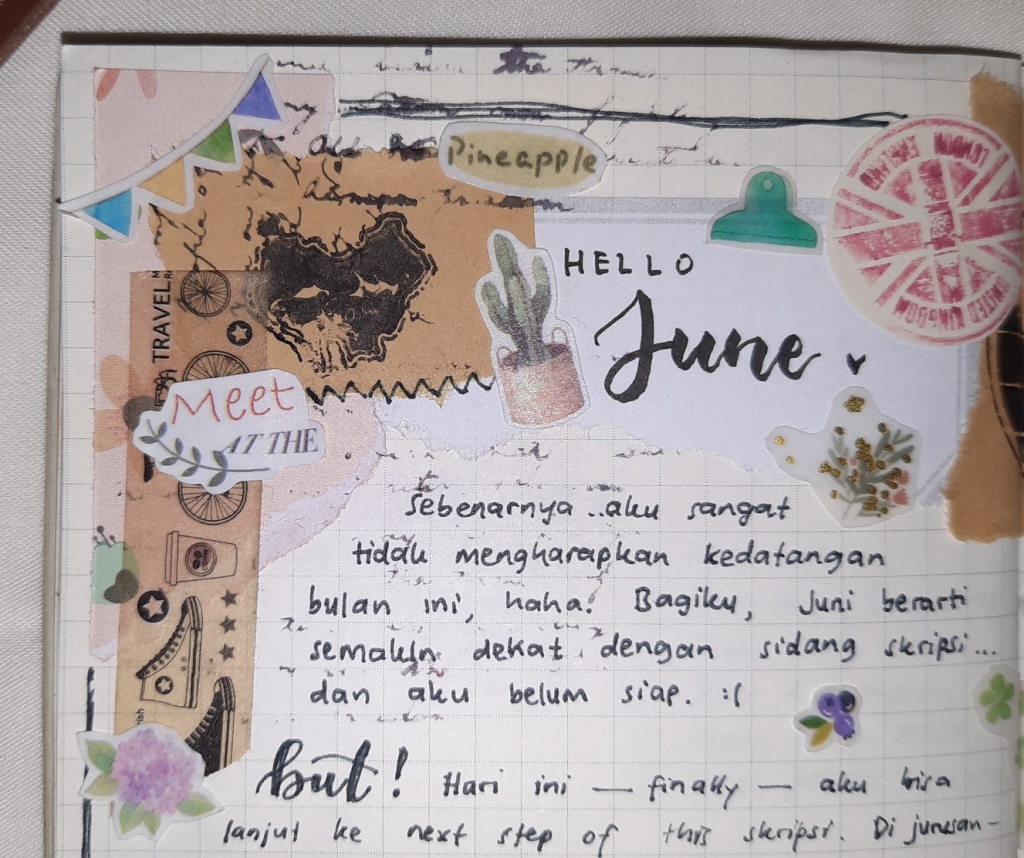 Pineapple
UNITED KINGDOM
TRAVEL
HELLO
June
Meet
AT THE
sebenarnya..aku sangat
tidak mengharapkan kedatangan
bulan ini, haha! Bagiku, Juni berarti
semakin dekat dengan sidang skripsi...
dan aku belum siap. :(
but! Hari ini — finally — aku bisa
lanjut ke next step of this skripsi. Di jurusan-